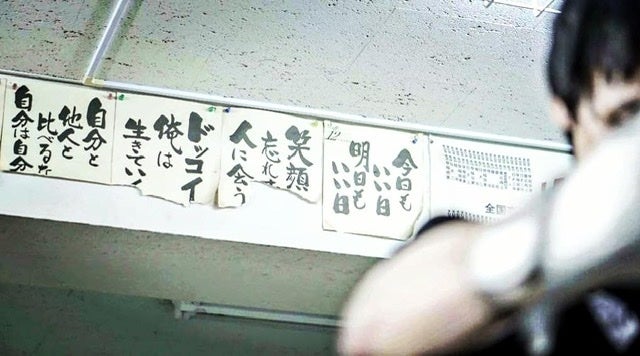 全国
12
今日も
いい日
明日も
いい日
笑顔
忘れ
人に会う
ドッコイ
俺は
生きてい
自分と
他人と
比べるな
自分は自分